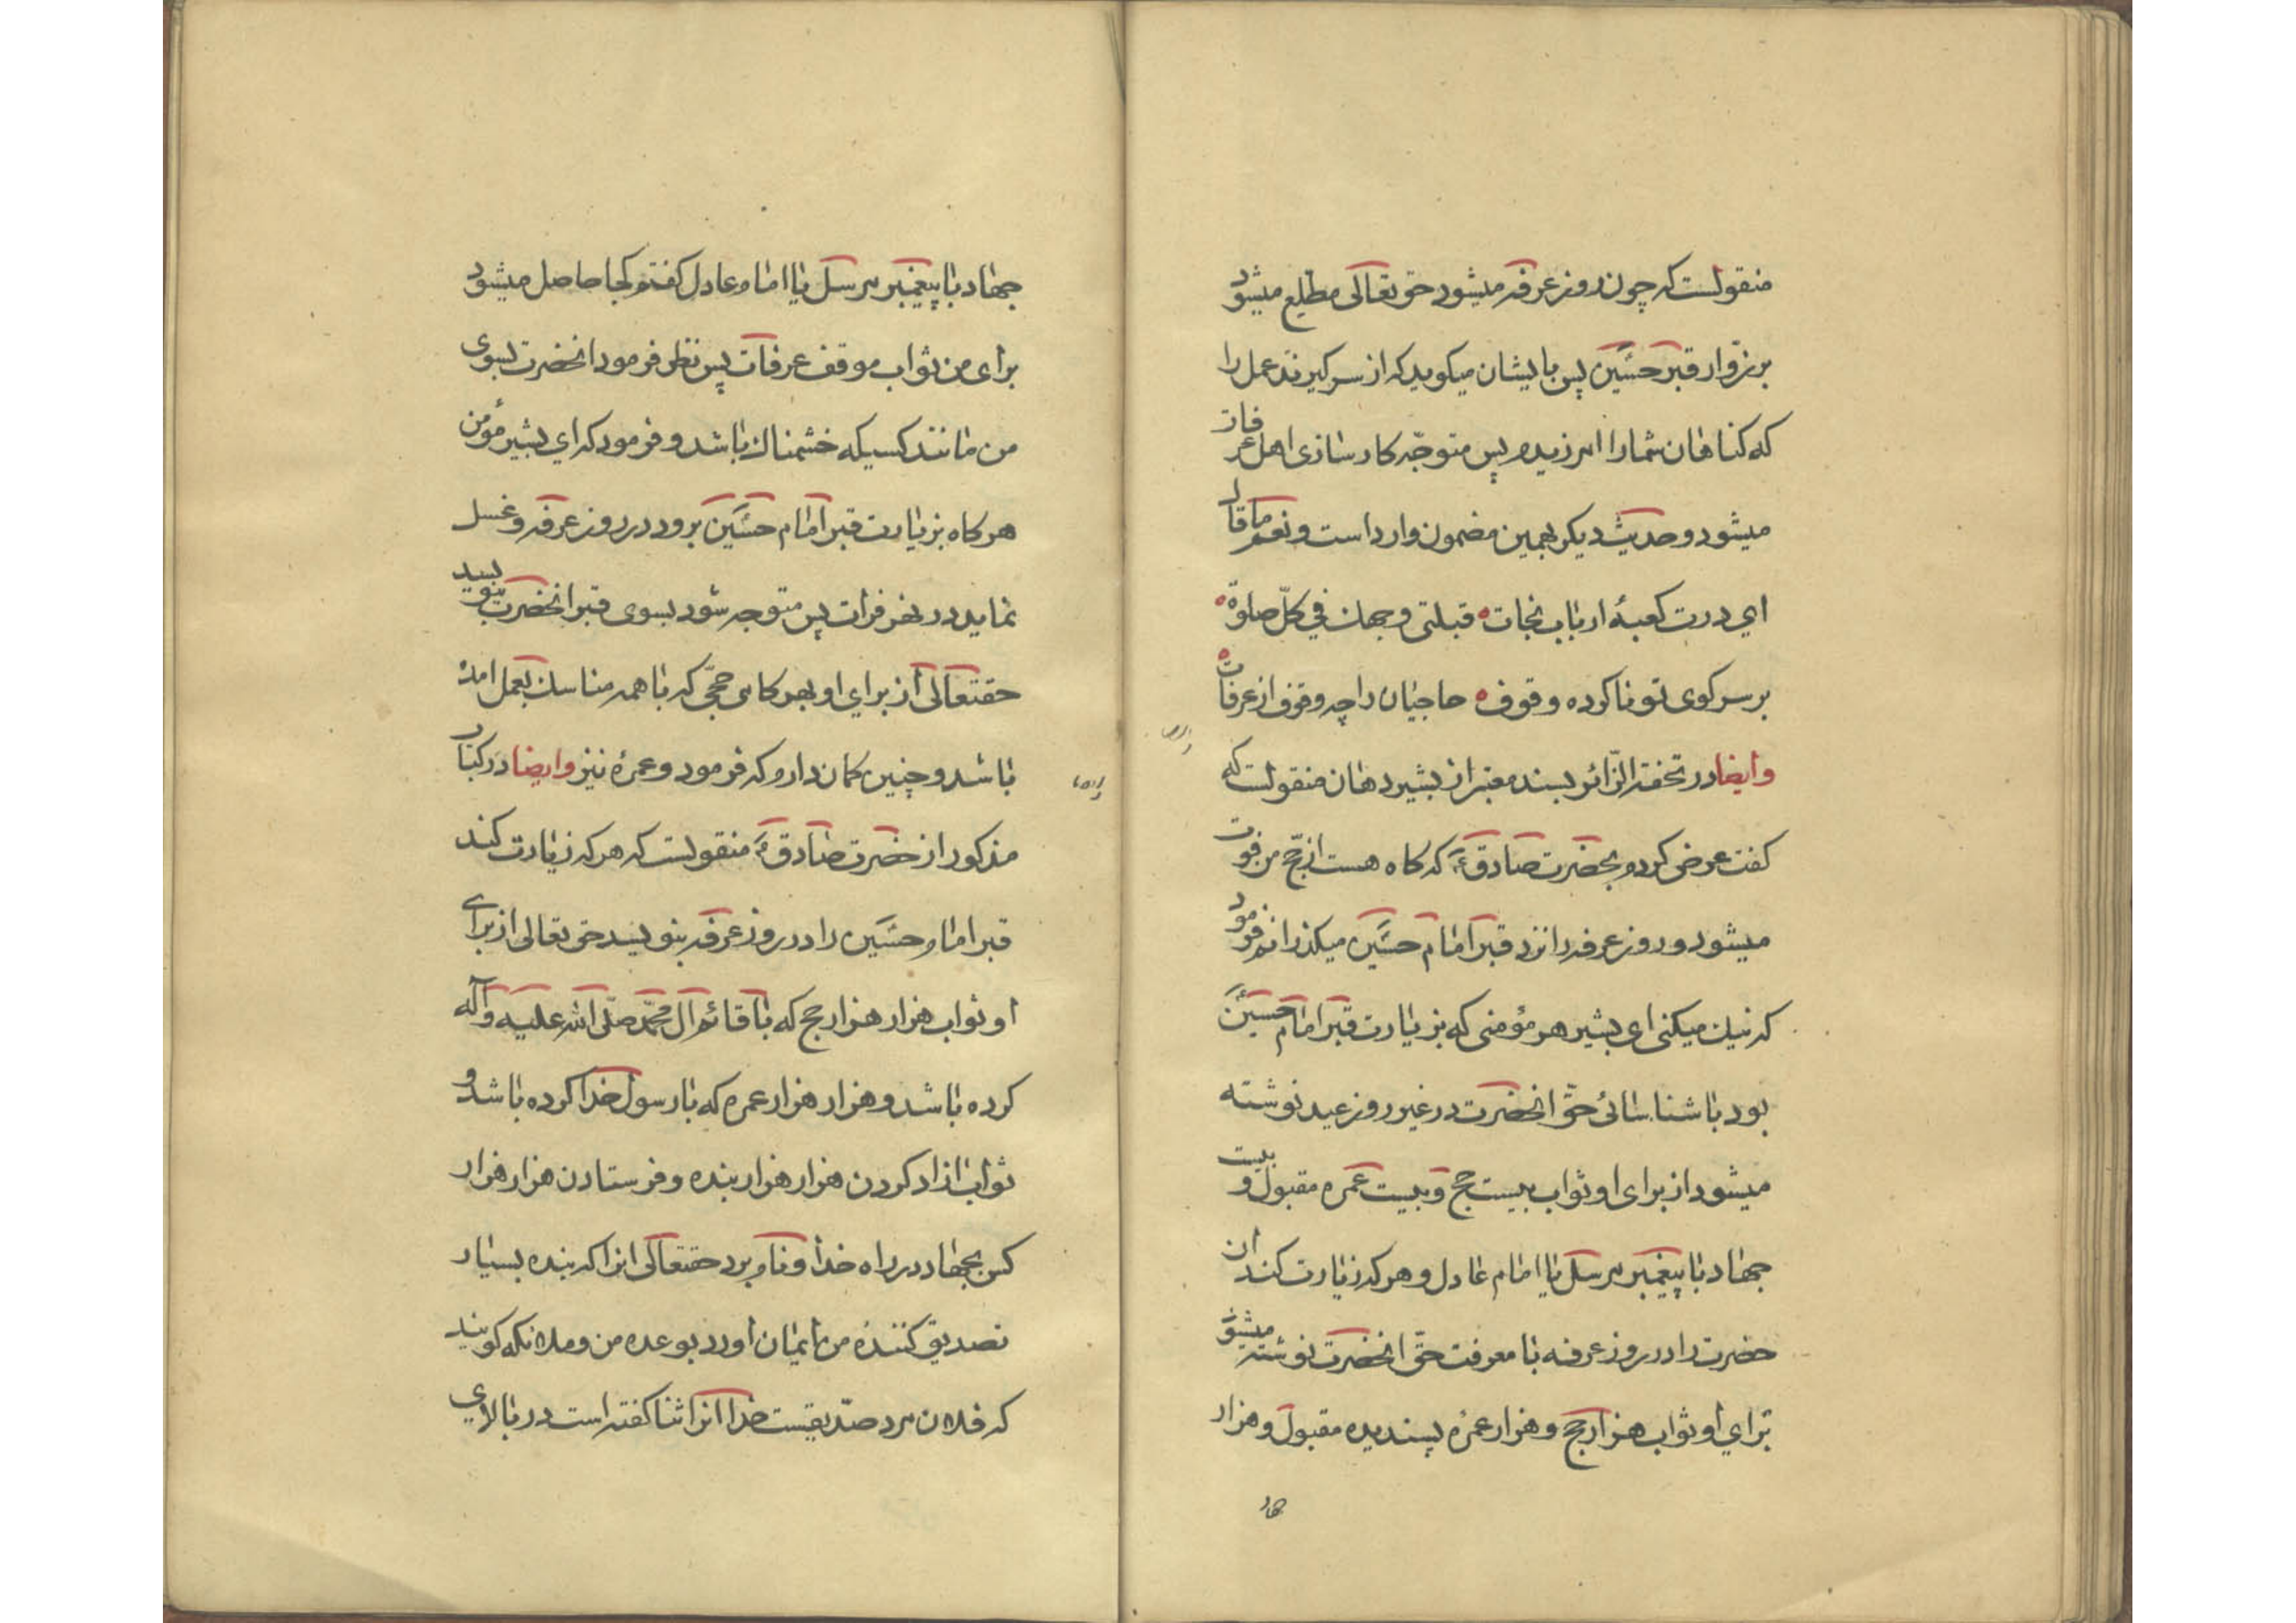 منقولست که چون روز عرفه میشود حق تعالی مطلع میشود
بر زوّار قبر حسین پس بایشان میکوید که از سر کیرند عمل را
که کناهان شما را امرزیدم پس متوجّه کارسازی اهل عرفات
میشود و حدیث دیکر بهمین مضمون وارد است و نعم ما قال
ای درت کعبهٔ ارباب نجات قبلتی وجهك فی کلّ صلوة
بر سر کوی تو ناکرده وقوف حاجیان را چه وقوف از عرفات
وایضا در تحفة الزّائر بسند معتبر از بشیر دهان منقولست که
کفت عرض کردم بحضرت صادقؑ که کاه هست از حجّ من فوت
میشود و روز عرفه را نزد قبر امام حسین میکذرانم فرمود
که نیك میکنی ای بشیر هر مؤمنی که بزیارت قبر امام حسین
بود باشناسائی حقّ انحضرت در غیر روز عید نوشته
میشود از برای او ثواب بیست حج و بیست عمره مقبول و بیست
جهاد با پیغمبر مرسل یا امام عادل و هر که زیارت کند ان
حضرت را در روز عرفه با معرفت حقّ انحضرت نوشته میشود
برای او ثواب هزار حج و هزار عمرهٔ پسندیده مقبول و هزار
جهاد با پیغمبر مرسل یا امام عادل کفتم کجا حاصل میشود
برای من ثواب موقف عرفات پس نظر فرمود انحضرت بسوی
من مانند کسیکه خشمناك باشد و فرمود که ای بشیر مؤمن
هر کاه بزیارت قبر امام حسین برود در روز عرفه و غسل
نماید در نهر فرات پس متوجه شود بسوی قبر انحضرت بنویسد
حقتعالی از برای او بهر کامی حجّی که با همه مناسك بعمل امده
باشد و چنین کمان دارم که فرمود و عمرهٔ نیز وایضا در کتاب
مذکور از حضرت صادقؑ منقولست که هر که زیارت کند
قبر امام حسین را در روز عرفه بنویسد حق تعالی از برای
او ثواب هزار هزار حج که با قائم ال محمّد صلّی الله علیه وآله
کرده باشد و هزار هزار عمره که با رسول خدا کرده باشد و
ثواب ازاد کردن هزار هزار بنده و فرستادن هزار هزار
کس بجهاد در راه خدا و نام برد حقتعالی انرا که بنده بسیار
تصدیق کنندهٔ من ایمان اورد بوعده من و ملائکه کویند
که فلان مرد صدّیقیست خدا انرا ثنا کفته است در بالای